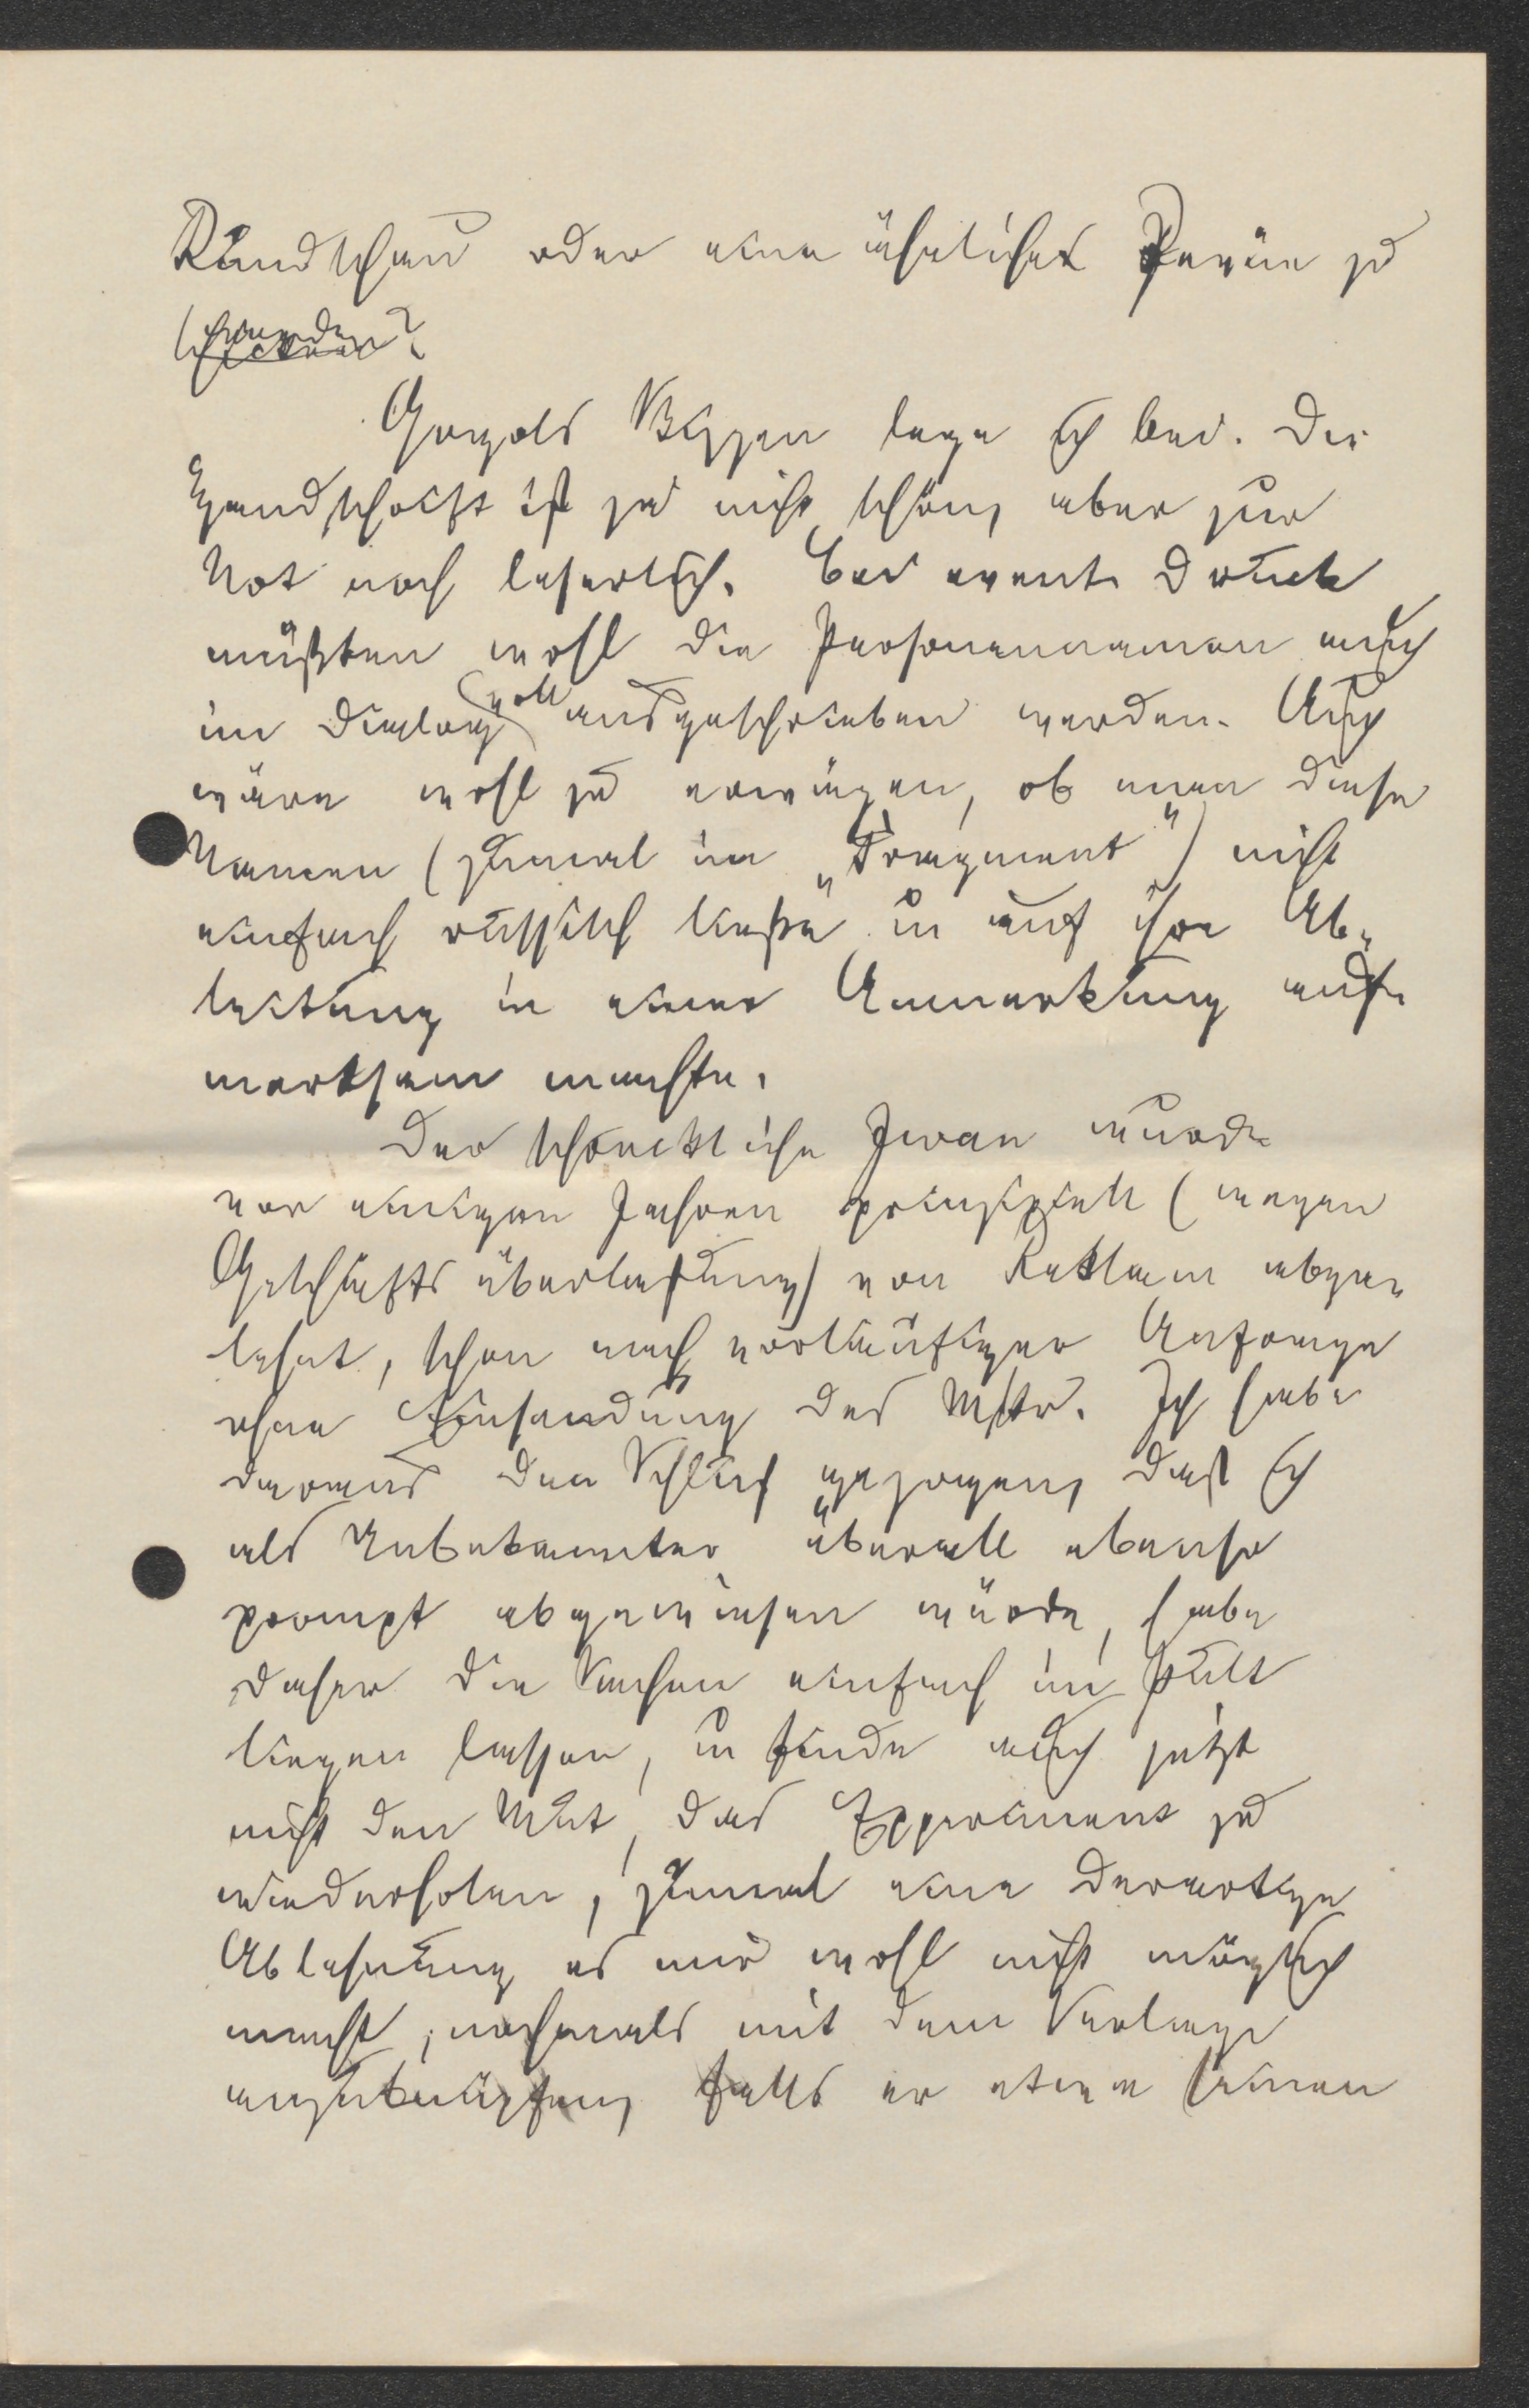 Rundschau oder eine ähnliches Revue zu
senden?
Gogols Skizzen lege ich bei. Die
Handschrift ist ja nicht schön, aber zur
Not noch leserlich. Bei event. Druck
müßten wohl die Personennamen auch
im Dialog voll ausgeschrieben werden. Auch
wäre wohl zu erwägen, ob man diese
Namen (zumal im „Fragment") nicht
einfach russisch ließe u auf ihre Ab-
leitung in einer Anmerkung auf-
merksam machte.
Der schreckliche Iwan wurde
vor einigen Jahren prinzipiell (wegen
Geschäftsüberlastung) von Reklam abge-
lehnt, schon nach vorläufiger Anfrage
ohne Einsendung des Mskr. Ich habe
daraus den Schluß gezogen, daß ich
als Unbekannter überall ebenso
prompt abgewiesen würde, habe
daher die Sachen einfach im Pult
liegen lassen, u finde auch jetzt
nicht den Mut, das Experiment zu
wiederholen, zumal eine derartige
Ablehnung es mir wohl nicht möglich
macht, nochmals mit dem Verlage
anzuknüpfen, falls er etwa einen